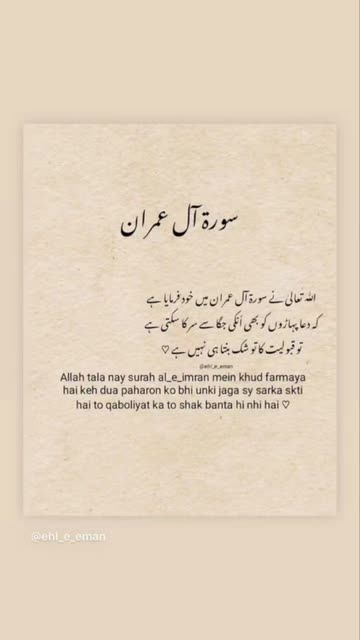 سورۃ آل عمران
اللہ تعالیٰ نے سورۃ آل عمران میں خود فرمایا ہے
کہ دعا پہاڑوں کو بھی اُنکی جگا سے سرکا سکتی ہے
تو قبولیت کا تو شک بنتا ہی نہیں ہے ♡
@ehl_e_eman
Allah tala nay surah al_e_imran mein khud farmaya
hai keh dua paharon ko bhi unki jaga sy sarka skti
hai to qaboliyat ka to shak banta hi nhi hai ♡
@ehl_e_eman